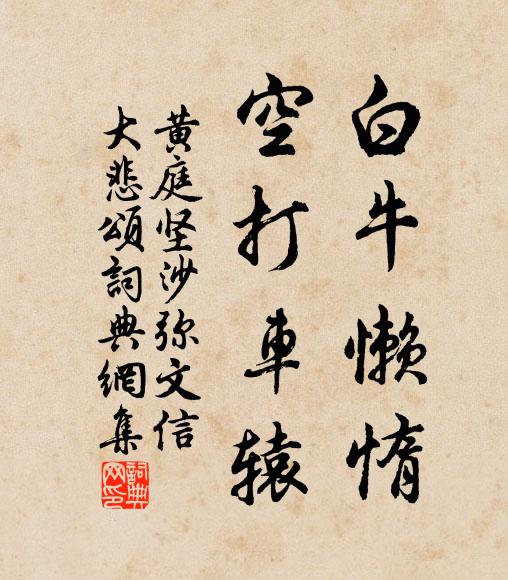 白牛懒惰
空打車辕
黄庭坚沙弥文信
大悲頌詞典網集
詞典网印